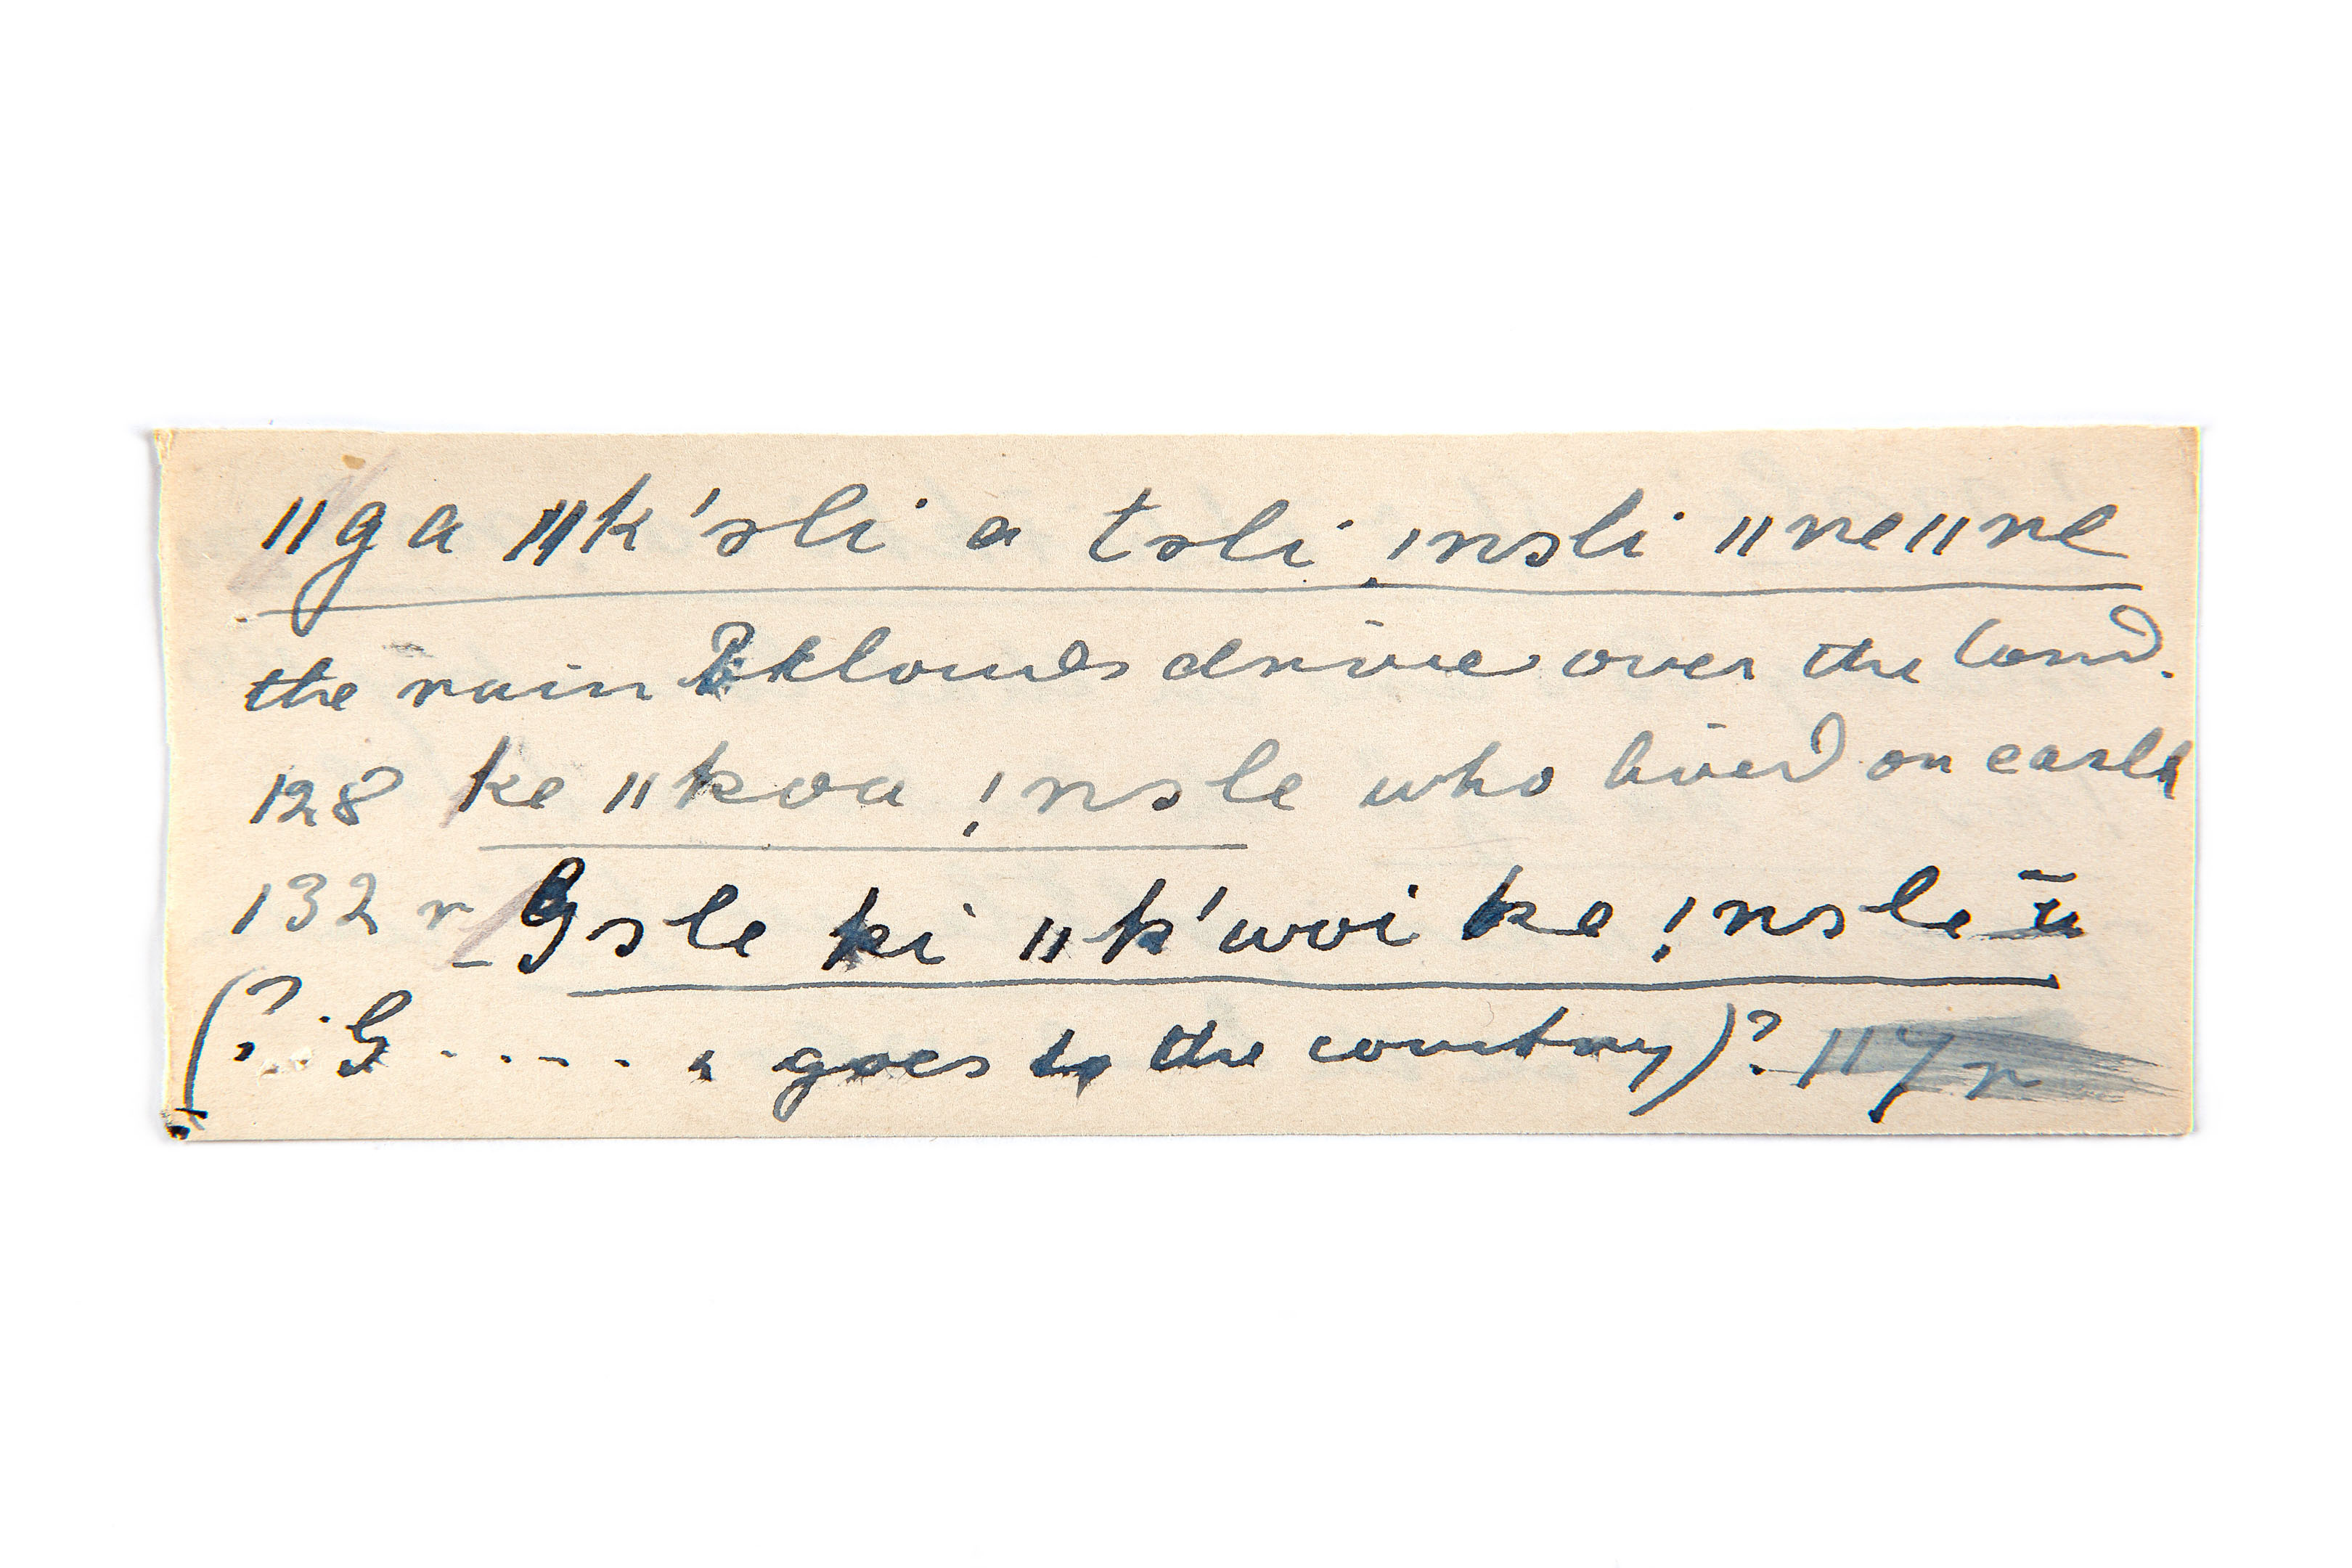 ǁga ǁk'sli a tsli ǃnsli ǁneǁne
the rain klouds drive over the land.
128 ke ǁkoa ǃnsle who lived on earth
132 r Gsle ki ǁk'woi ke ǃnsle ū
(? G ..... a goes to the country)? 117 r